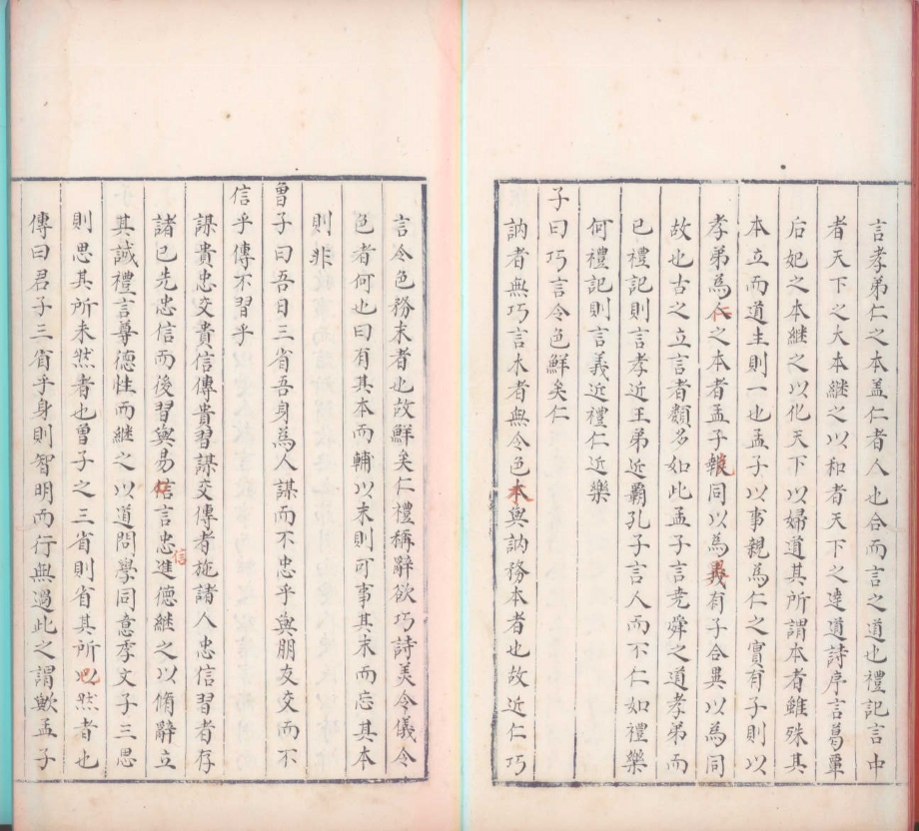 言孝弟仁之本盖仁者人也合而言之道也禮記言中
者天下之大本継之以和者天下之達道詩序言葛覃
后妃之本継之以化天下以婦道其所謂本者雖殊其
本立而道生則一也孟子以事親為仁之實有子則以
孝弟為仁之本者孟子報同以為義有子合異以為同
故也古之立言者類多如此孟子言尭舜之道孝弟而
已禮記則言孝近王弟近覇孔子言人而不仁如禮樂
何禮記則言義近禮仁近樂
子曰巧言令色鮮矣仁
訥者無巧言木者無令色木與訥務本者也故近仁巧
言令色務末者也故鮮矣仁禮稱辭欲巧詩美令儀令
色者何也曰有其本而輔以末則可事其末而忘其本
則非
曾子曰吾日三省吾身為人謀而不忠乎與朋友交而不
信乎傳不習乎
謀貴忠交貴信傳貴習謀交傳者施諸人忠信習者存
諸已先忠信而後習與易信言忠信進德継之以脩辭立
其誠禮言尊德性而継之以道問學同意季文子三思
則思其所未然者也曾子之三省則省其所已然者也
傳曰君子三省乎身則智明而行無過此之謂歟孟子